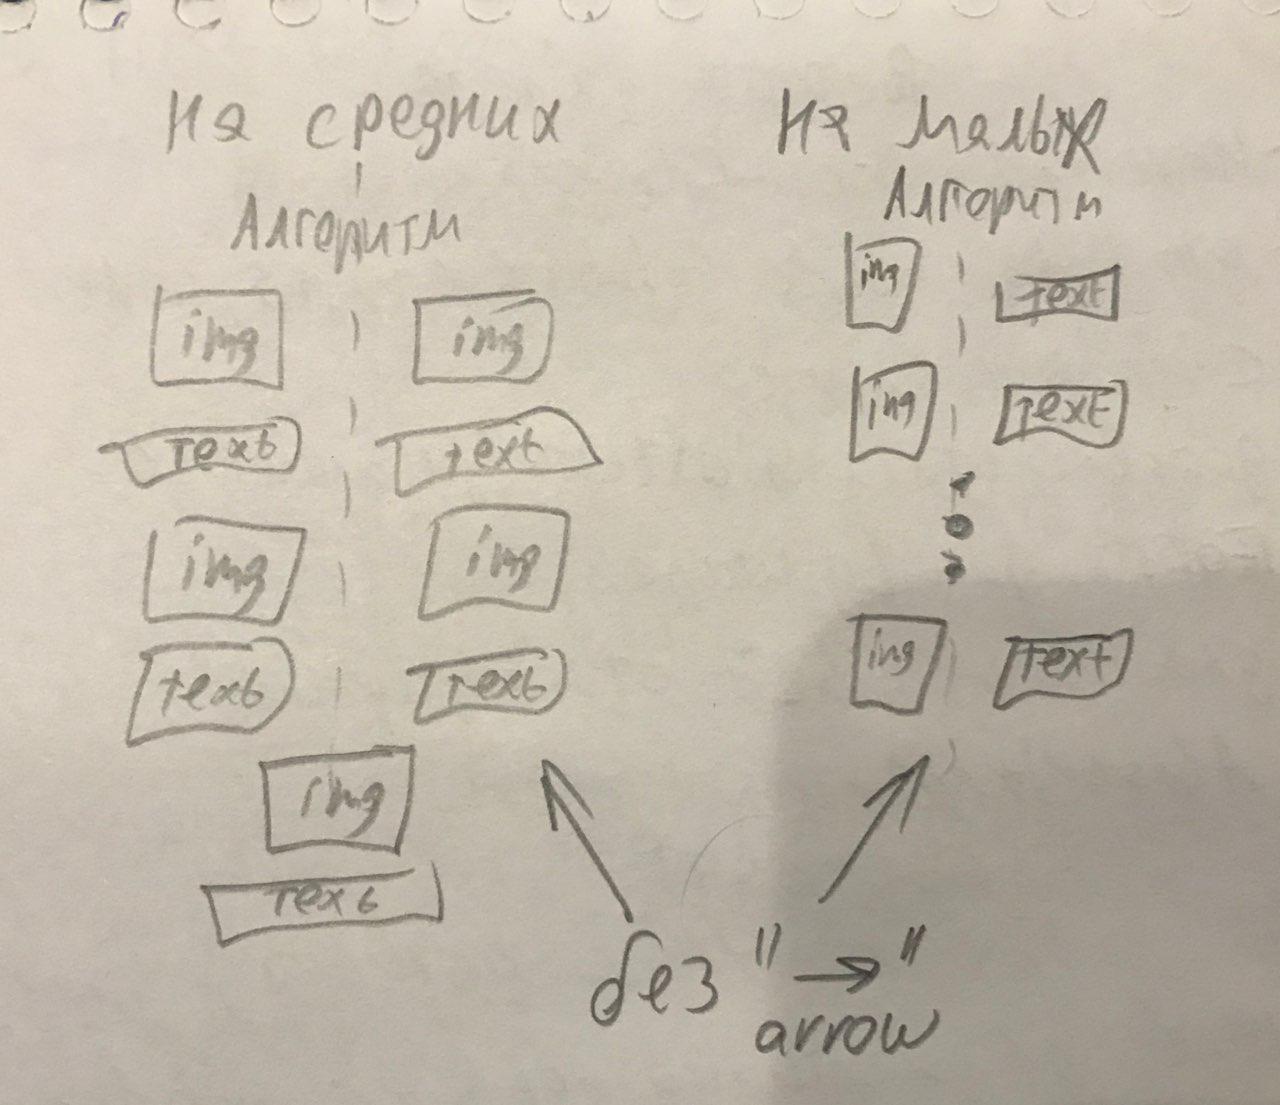 На средних
Алгоритм
img img
text text
img img
text text
img
text
На малых
Алгоритм
img text
img text
img text
без "→"
arrow